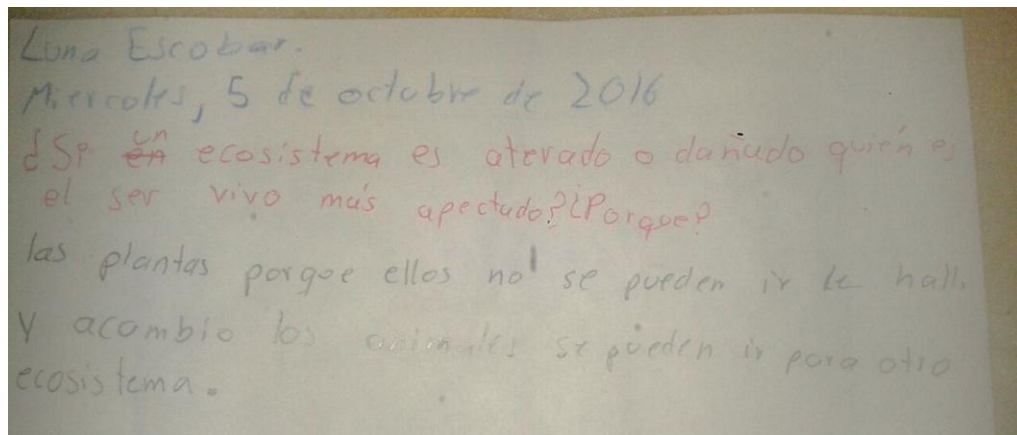 Luna Escobar.
Miercoles, 5 de octubre de 2016
¿Si un ecosistema es aterado o dañado quién es
el ser vivo más apectado?¿Porque?
las plantas porque ellos no se pueden ir de hall
y acambio los animales se pueden ir para otro
ecosistema.